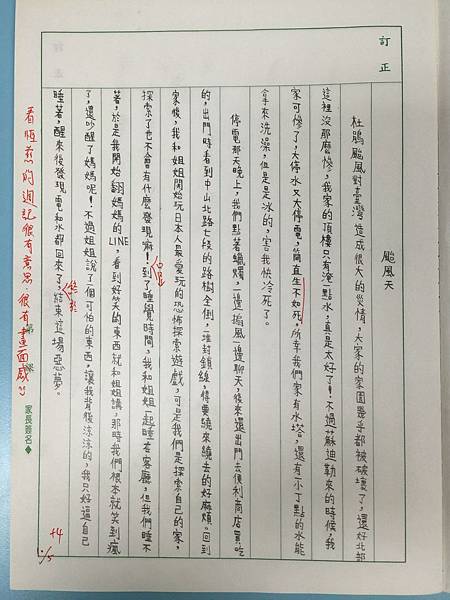 訂正
颱風天
杜鵑颱風對臺灣造成很大的災情，大家的家園幾乎都被破壞了，還好北部
這裡沒那麼慘，我家的頂樓只有淹一點水，真是太好了！不過蘇迪勒來的時候，我
家可慘了，大停水又大停電，簡直生不如死，所幸我們家有水塔，還有一丁點的水能
拿來洗澡，但是是冰的，害我快冷死了。
停電那天晚上，我們點著蠟燭，一邊搧風一邊聊天，後來還出門去便利商店買吃
的，出門時看到中山北路七段的路樹全倒，一堆封鎖線，得要繞來繞去的好麻煩。回到
家後，我和姐姐開始玩日本人最愛玩的恐怖探索遊戲，可是我們是探索自己的家，
探索了也不會有什麼發現嘛！到了睡覺時間，我和姐姐一起睡在客廳，但我們睡不
著，於是我開始翻媽媽的LINE，看到好笑的東西就和姐姐講，那時我們根本就笑到瘋
了，還吵醒了媽媽呢！不過姐姐說了一個可怕的東西，讓我背後涼涼的，我只好逼自己
睡著，醒來後發現電和水都回來了，結束這場惡夢。
看恆茲的週記很有意思，很有畫面感
第
家長簽名◆
+4
10/5